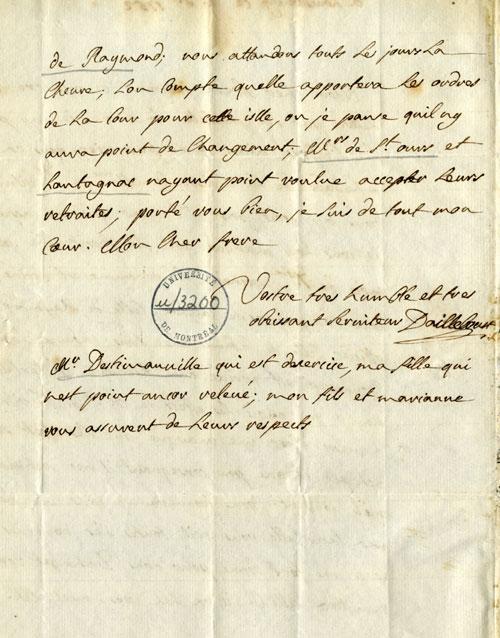 de Raymond; nous attandons touts les jours La
Chevre, Lon Compte quelle apportera les ordres
de La Cour pour cette isle, ou je panse quil ny
aura point de Changement; Mrs de St aurs et
Lantagnac nayant point voulue accepter Leurs
retraites; porté vous bien, je suis de tout mon
Cœur. Mon Cher frere
Vostre tres humble et tres
obeissant serviteur Dailleboust
UNIVERSITÉ
u/3200
DE MONTRÉAL
Mr Destimauville qui est desercice, ma fille qui
nest point ancor relevé; mon fils et marianne
vous assurent de Leurs respects